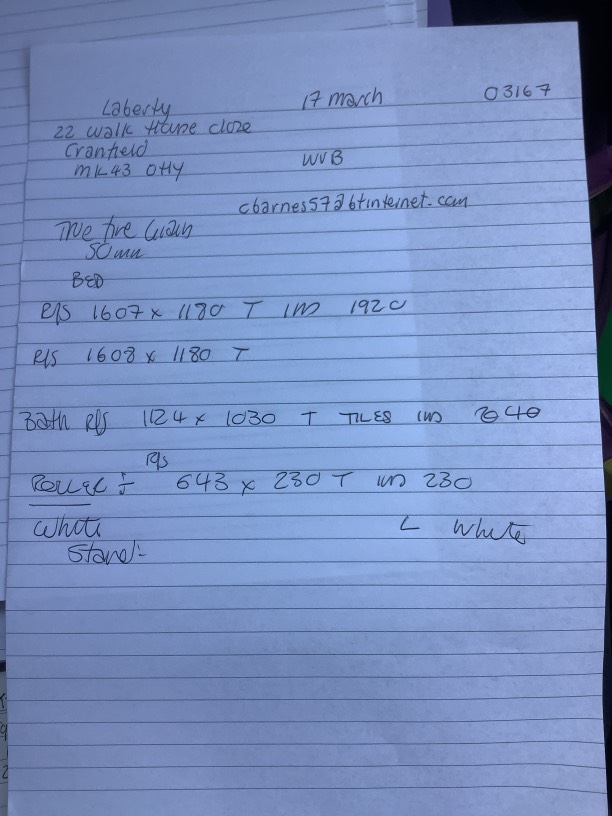 Laberty 17 march 03167
22 walk House close
Cranfield
MK43 0HY WVB
cbarnes57@btinternet.com
True fire Grain
50mm
BED
R/S 1607 x 1180 T IM 1920
R/S 1608 x 1180 T
Bath R/S 1124 x 1030 T TILES IM 2040
R/S
643 x 230 T IM 230
White L White
Stand:-